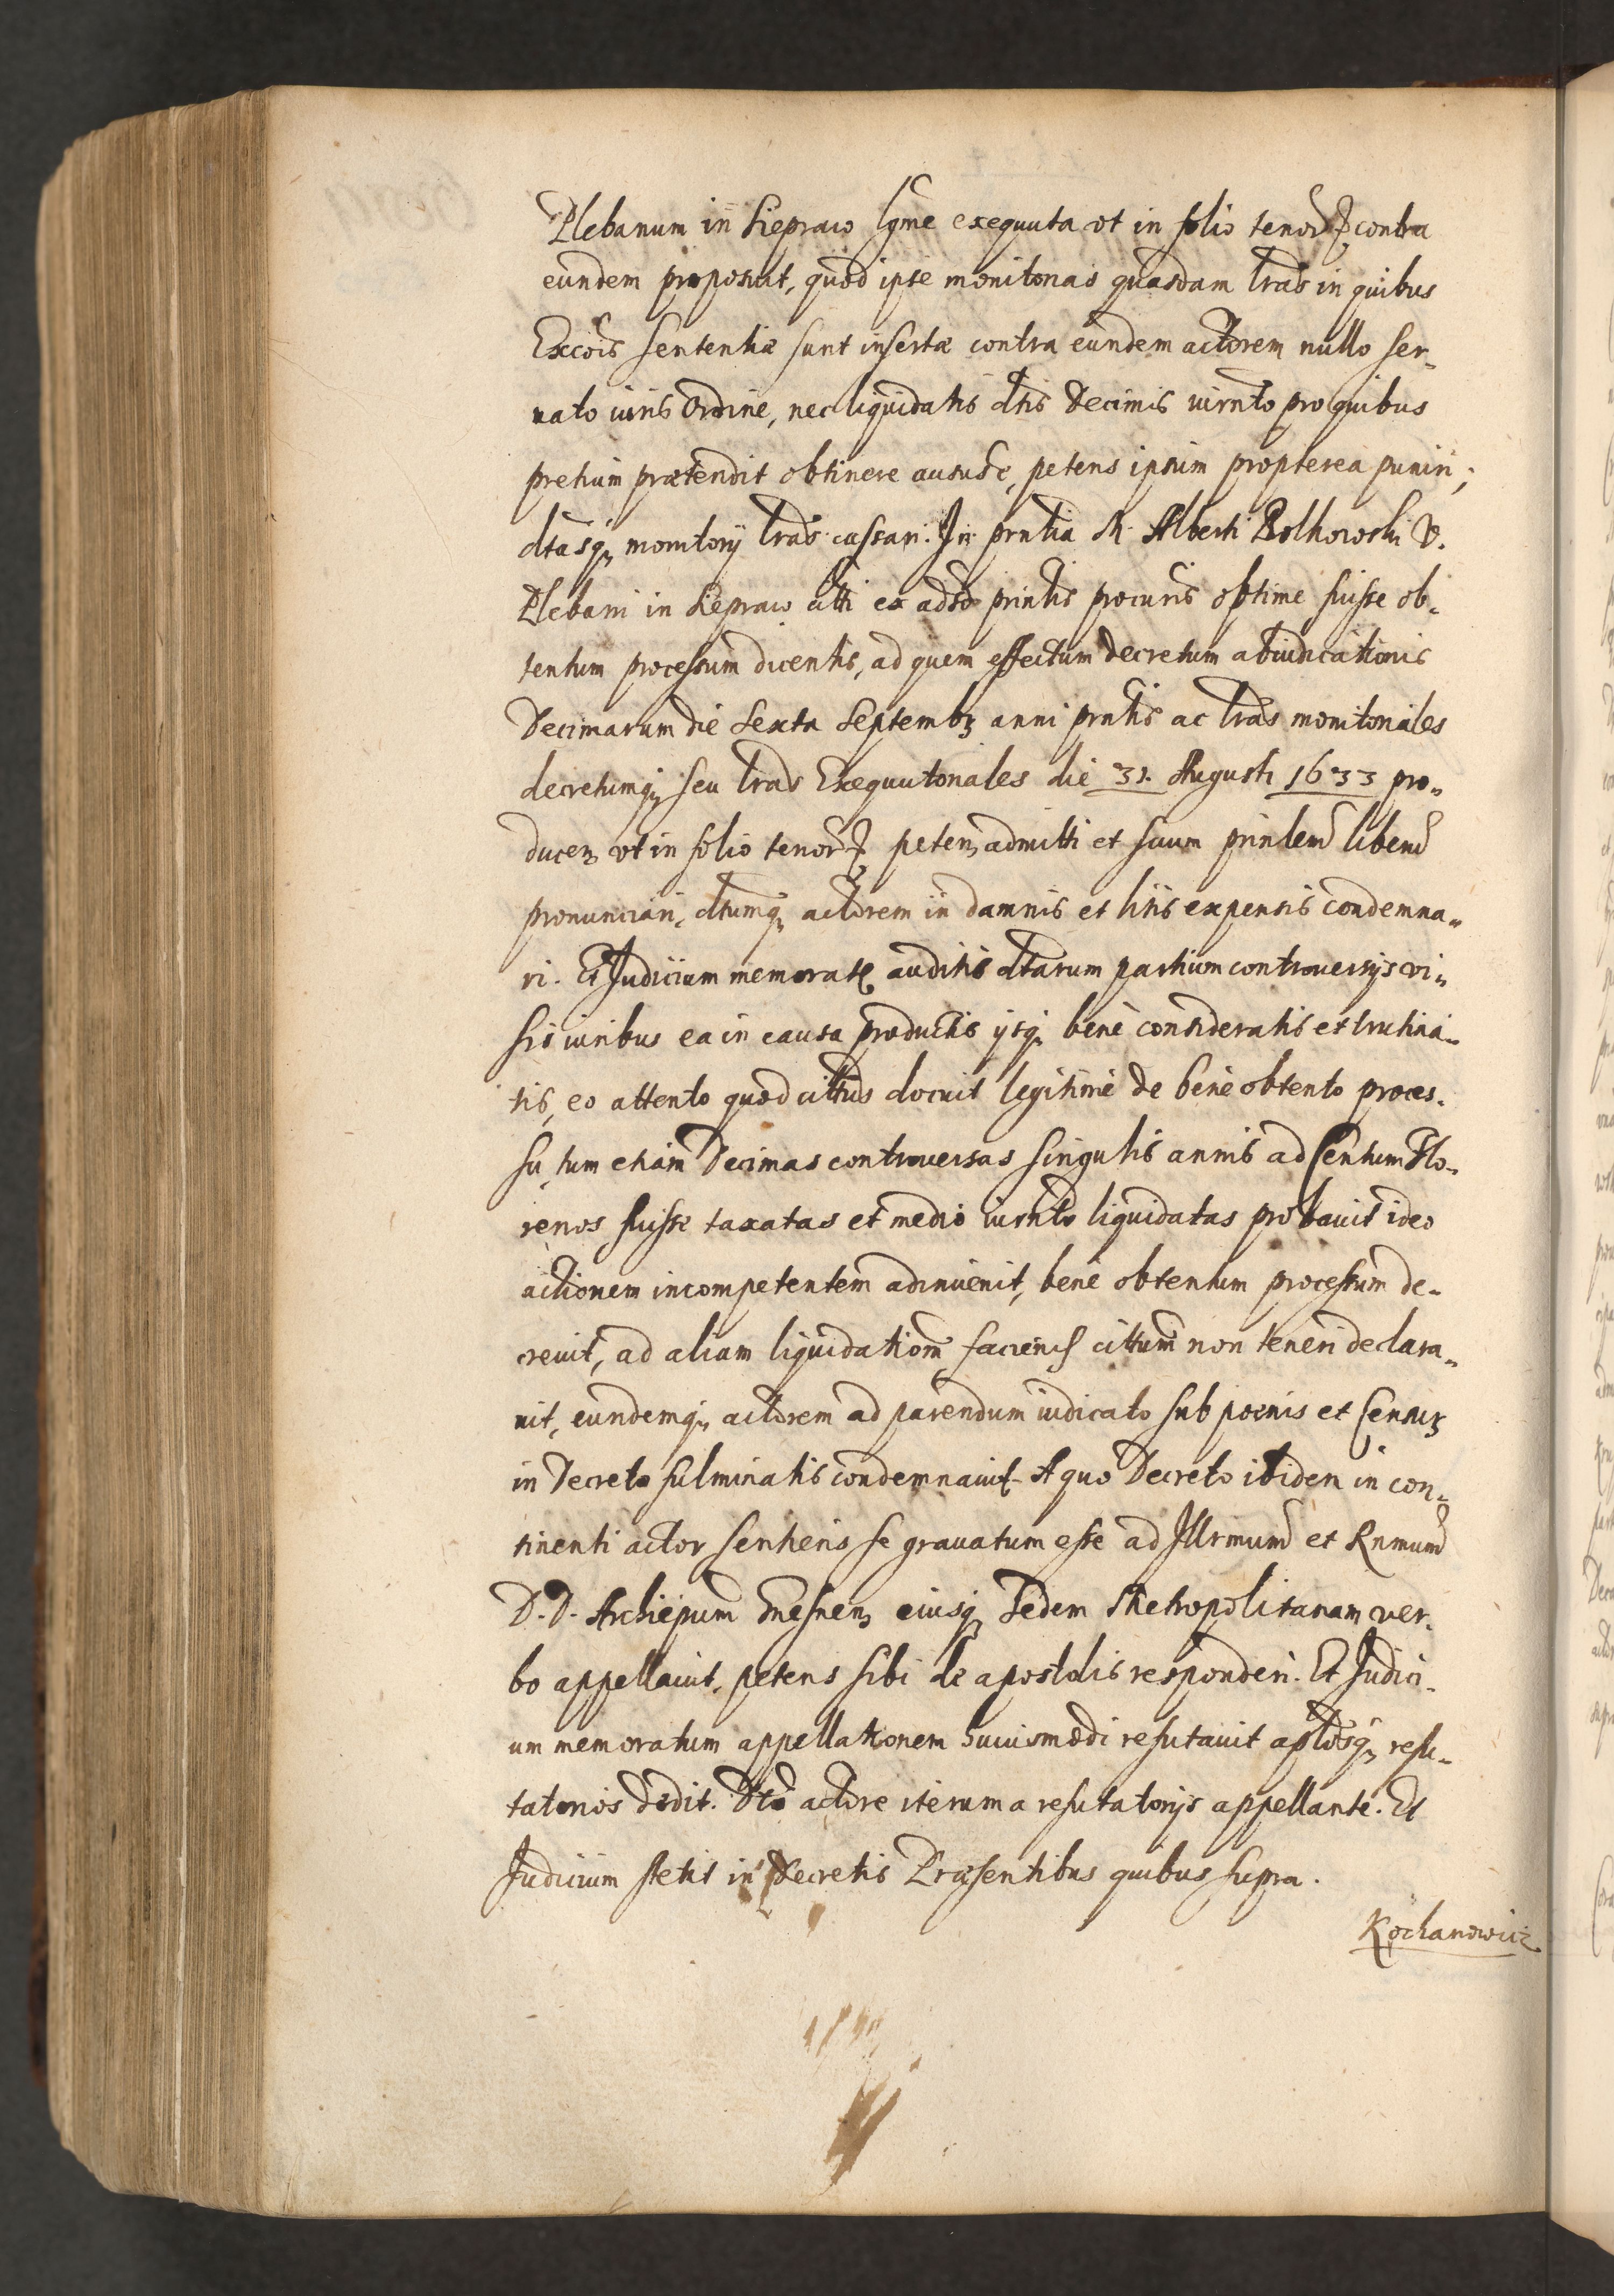 Plebanum in Siepraw lgme exequuta vt in folio tenoris contra
eundem proposuit, quod ipse monitorias quasdam lras in quibus
Excois sententiæ sunt insertæ contra eundem actorem nullo ser-
uato iuris Ordine, nec liquidatis dtis Decimis iurnto pro quibus
pretium prætendit obtinere ausus e, petens ipsum propterea puniri;
dtasq, monitorij lras cassari. In prntia M. Alberti Rolkowski V.
Plebani in Siepraw citti ex adso prinlis procuris optime fuisse ob-
tentum processum dicentis, ad quem effectum decretum abiudicationis
Decimarum die Sexta Septembr anni prntis ac lras monitoriales
decretumq, seu lras Exequutoriales die 31. Augusti 1633 pro-
ducen vt in folio tenoris peten admitti et suum prinlem liberu
pronunciari, dtumq, actorem in damnis et litis expensis condemna-
ri. Et Judicium memorat auditis dtarum partium controuersijs vi-
sis iuribus ea in causa productis ijsq, bene consideratis et trutina-
tis, eo attento quod cittus docuit legitime de bene obtento proces-
su, tum etiam Decimas controuersas singulis annis ad Centum Flo-
renos fuisse taxatas et medio iurnto liquidatas probauit ideo
actionem incompetentem adinuenit, bene obtentum processum de-
creuit, ad aliam liquidationem faciend cittum non teneri declara-
uit, eundemq, actorem ad parendum iudicato sub poenis et Censur
in Decreto fulminatis condemnauit. A quo Decreto ibidem in con-
tinenti actor sentiens se grauatum esse ad Jllrmum et Rnmum
D. D. Archiepum Gnesnen eiusq, Sedem Metropolitanam ver-
bo appellauit, petens sibi de apostolis responderi. Et Judici-
um memoratum appellationem huiusmodi refutauit aplosq, refu-
tatorios dedit. Dto actore iterum a refutatorijs appellante. Et
Judicium stetit in Decretis Præsentibus quibus supra.
Kochanowicz